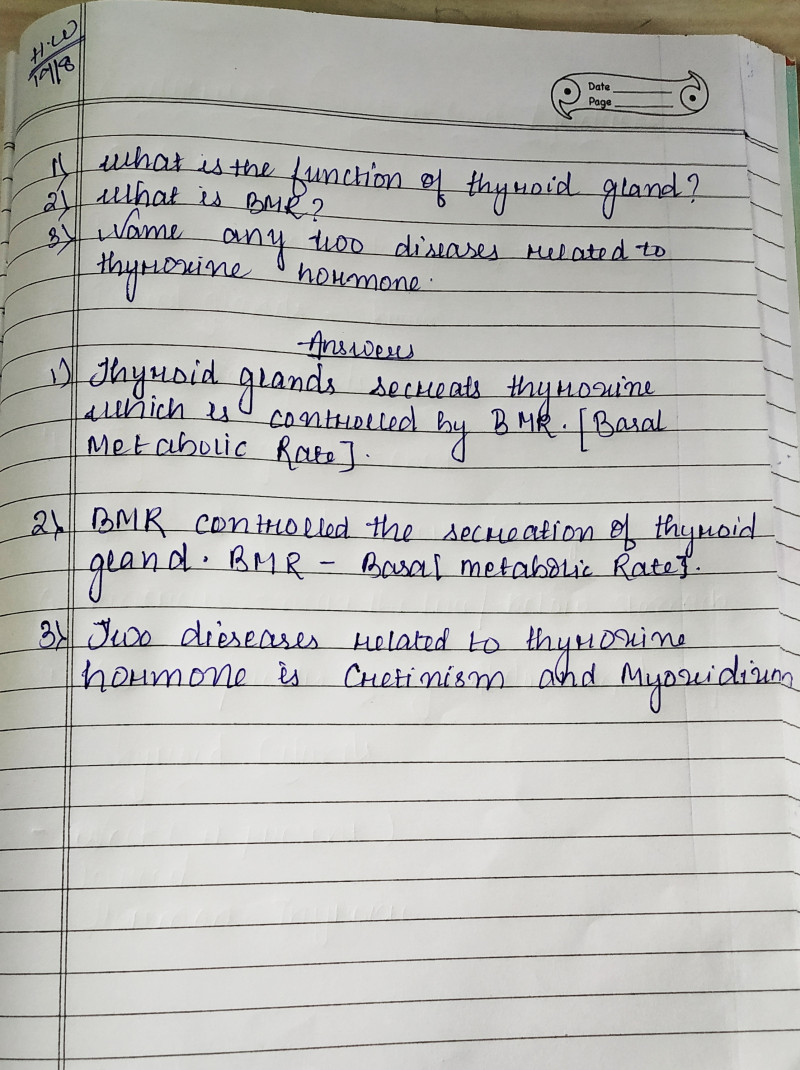 H.W
19/8
Date
Page
1) What is the function of thyroid gland?
2) What is BMR?
3) Name any two diseases related to
thyroxine hormone.
Answers
1) Thyroid glands secreats thyroxine
which is controlled by BMR. [Basal
Metabolic Rate].
2) BMR controlled the secreation of thyroid
gland. BMR - Basal metabolic Rate].
3) Two dieseases related to thyroxine
hormone is Cretinism and Myoxidium